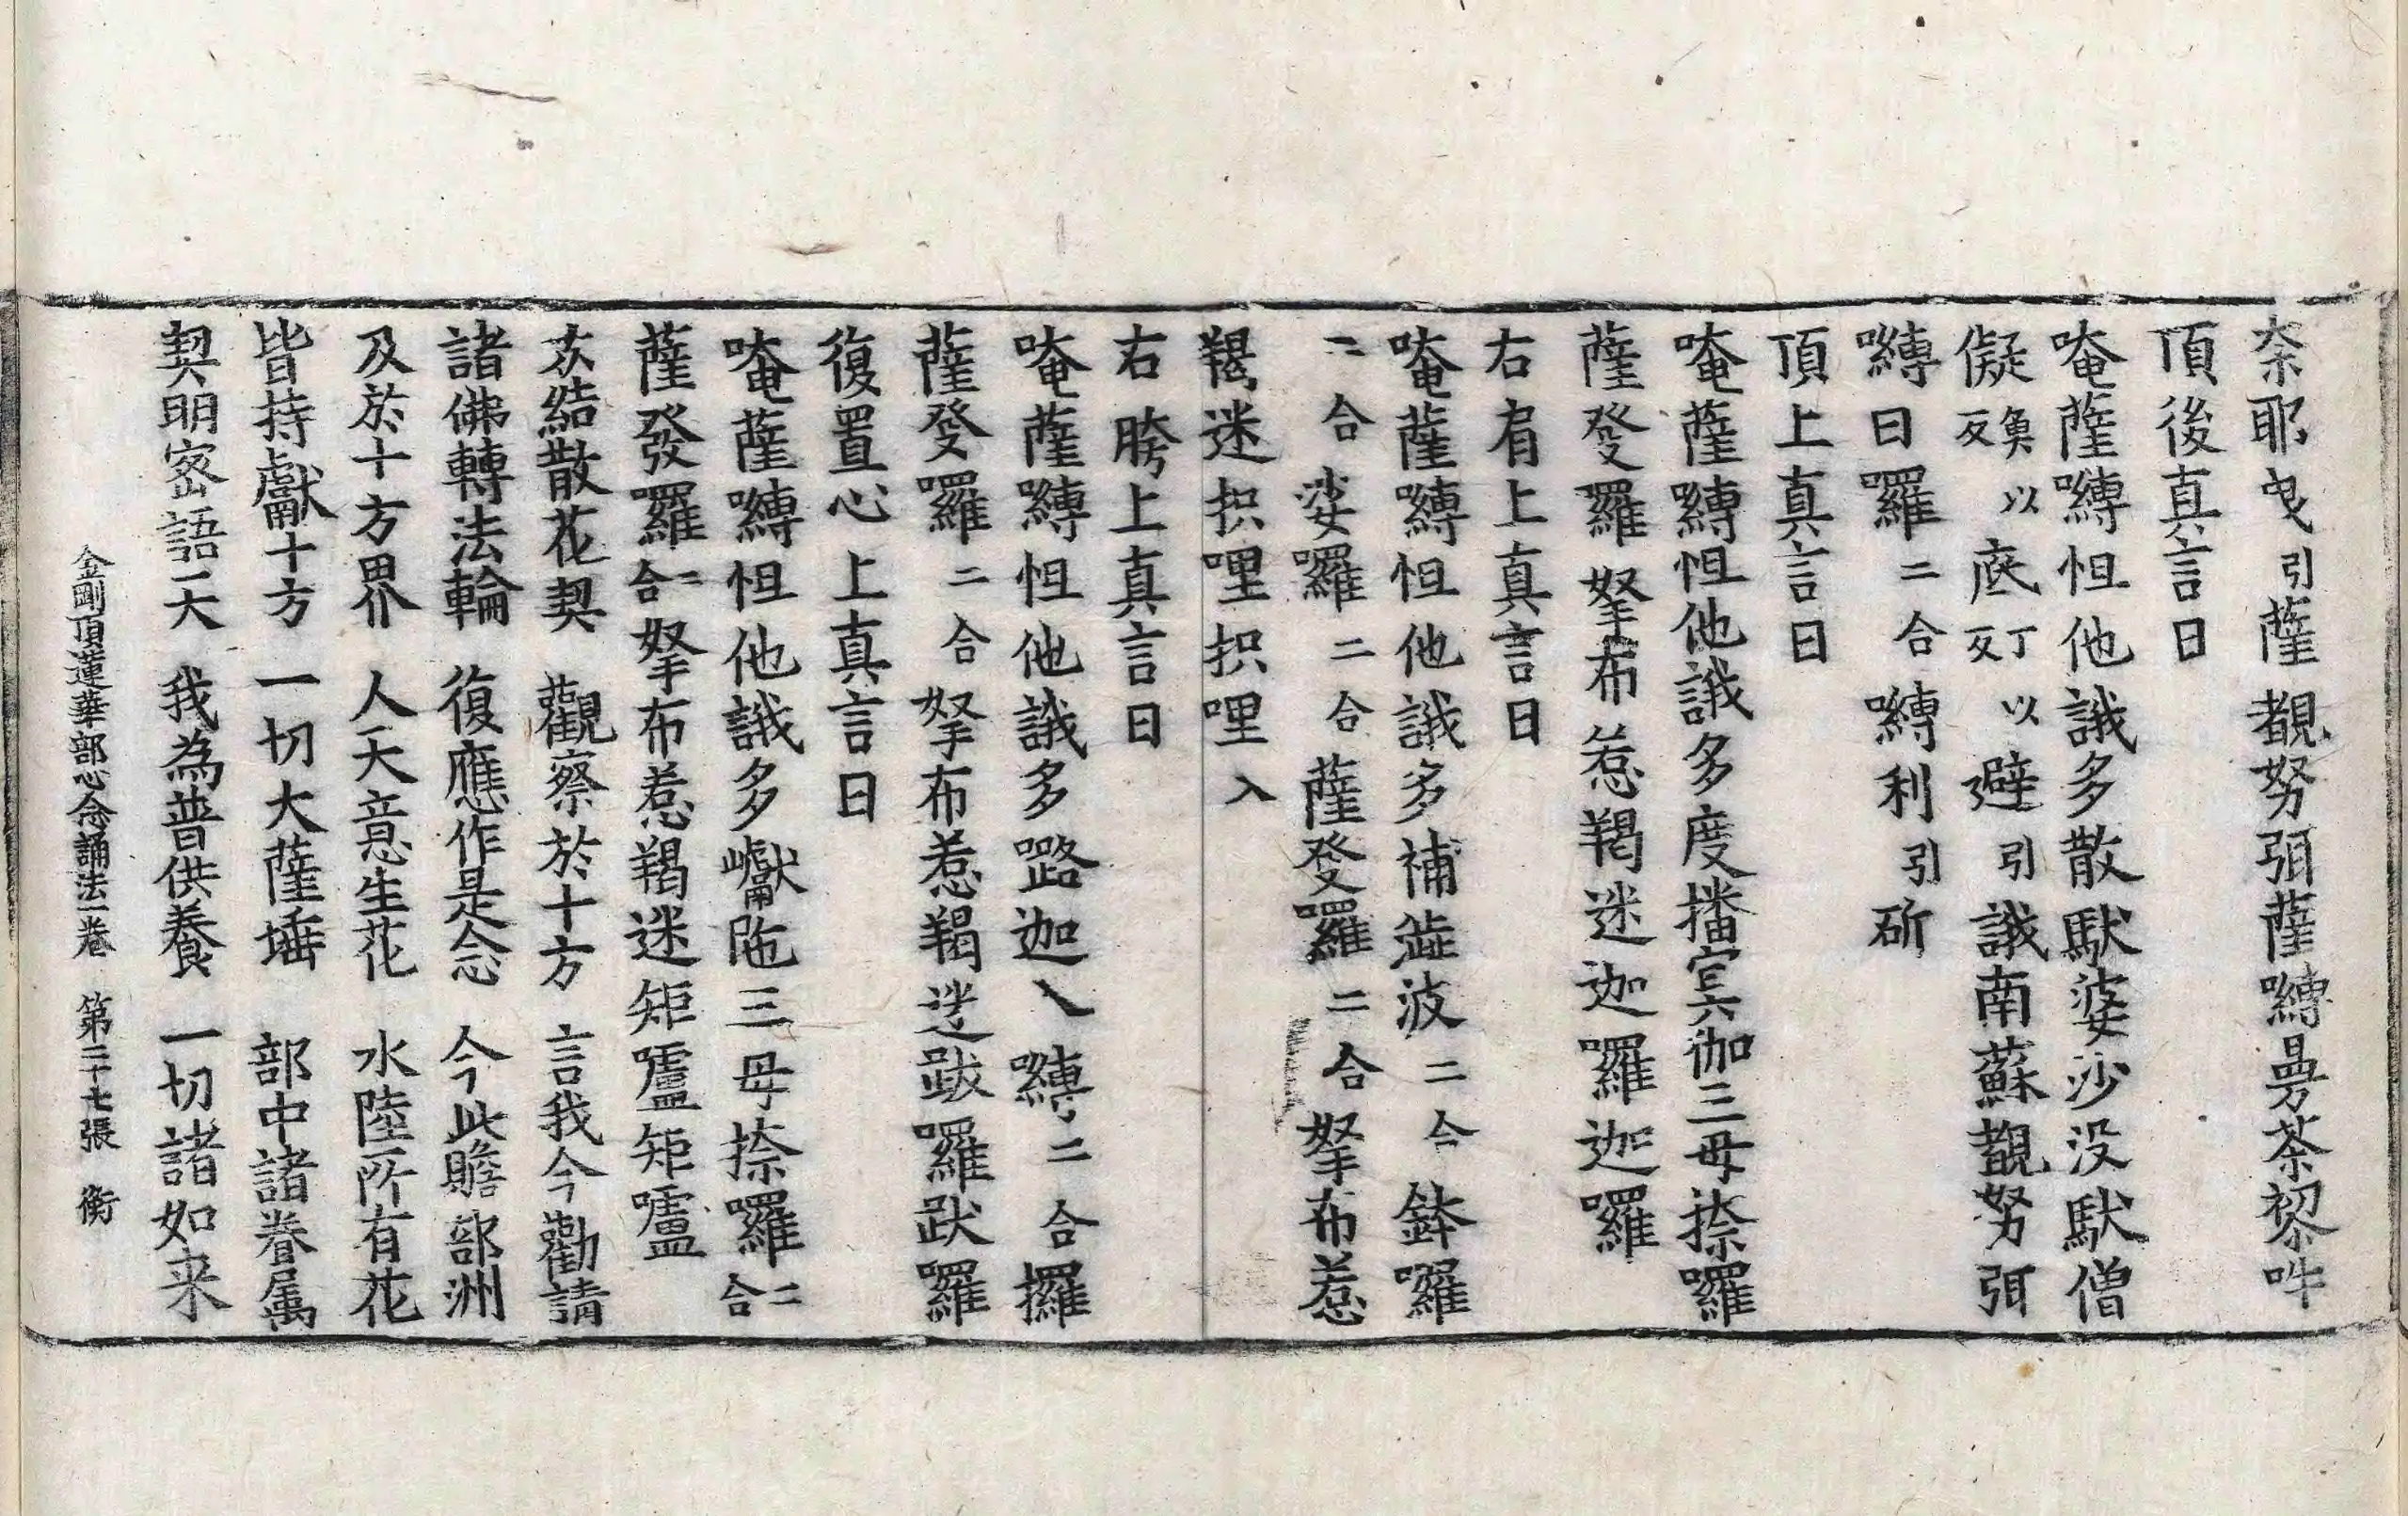 奈耶曳引薩覩努弭薩嚩曷荼嚟吽
頂後真言曰
唵薩嚩怛他誐多散馱婆沙没馱僧
儗魚以反底丁以反避引誐南蘇覩努弭
嚩曰羅二合嚩利引斫
頂上真言曰
唵薩嚩怛他誐多度播寘伽三母捺囉
薩發羅拏布惹羯迷迦囉迦囉
右肩上真言曰
唵薩嚩怛他誐多補澁波二合鉢囉
二合娑囉二合薩發羅二合拏布惹
羯迷抧哩抧哩入
右胯上真言曰
唵薩嚩怛他誐多路迦入嚩二合攞
薩發羅二合拏布惹羯迷跋囉跋囉
復置心上真言曰
唵薩嚩怛他誐多巘陁三母捺囉二合
薩發羅二合拏布惹羯迷矩嚧矩嚧
次結散花契　觀察於十方　言我今勸請
諸佛轉法輪　復應作是念　今此贍部洲
及於十方界　人天意生花　水陸所有花
皆持獻十方　一切大薩埵　部中諸眷属
契明密語天　我為普供養　一切諸如来
金剛頂蓮華部心念誦法一卷　第二十七張　衡